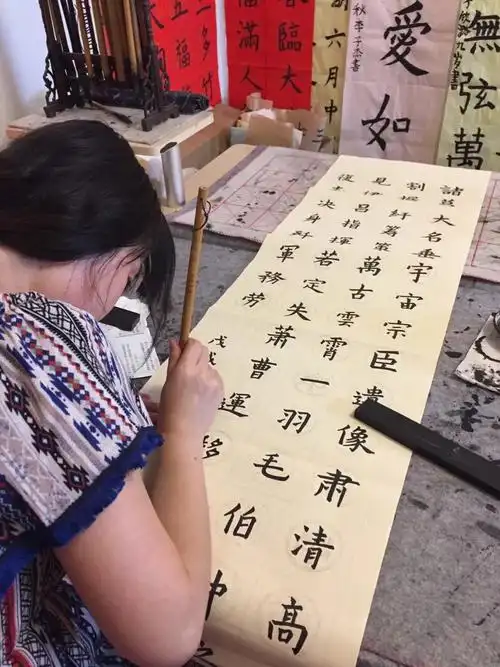 諸葛大名垂宇宙宗臣遺像肅清高
割據紆籌策萬古雲霄一羽毛伯仲
見伊呂指揮若定失蕭曹運移
復志決身殲軍務勞戊戌
無弦萬
愛如
秋李子杰書
六月中三
春臨大
福滿人
三多竹
五福